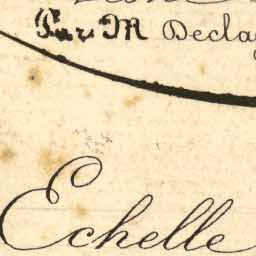 Par M Decla
Echelle